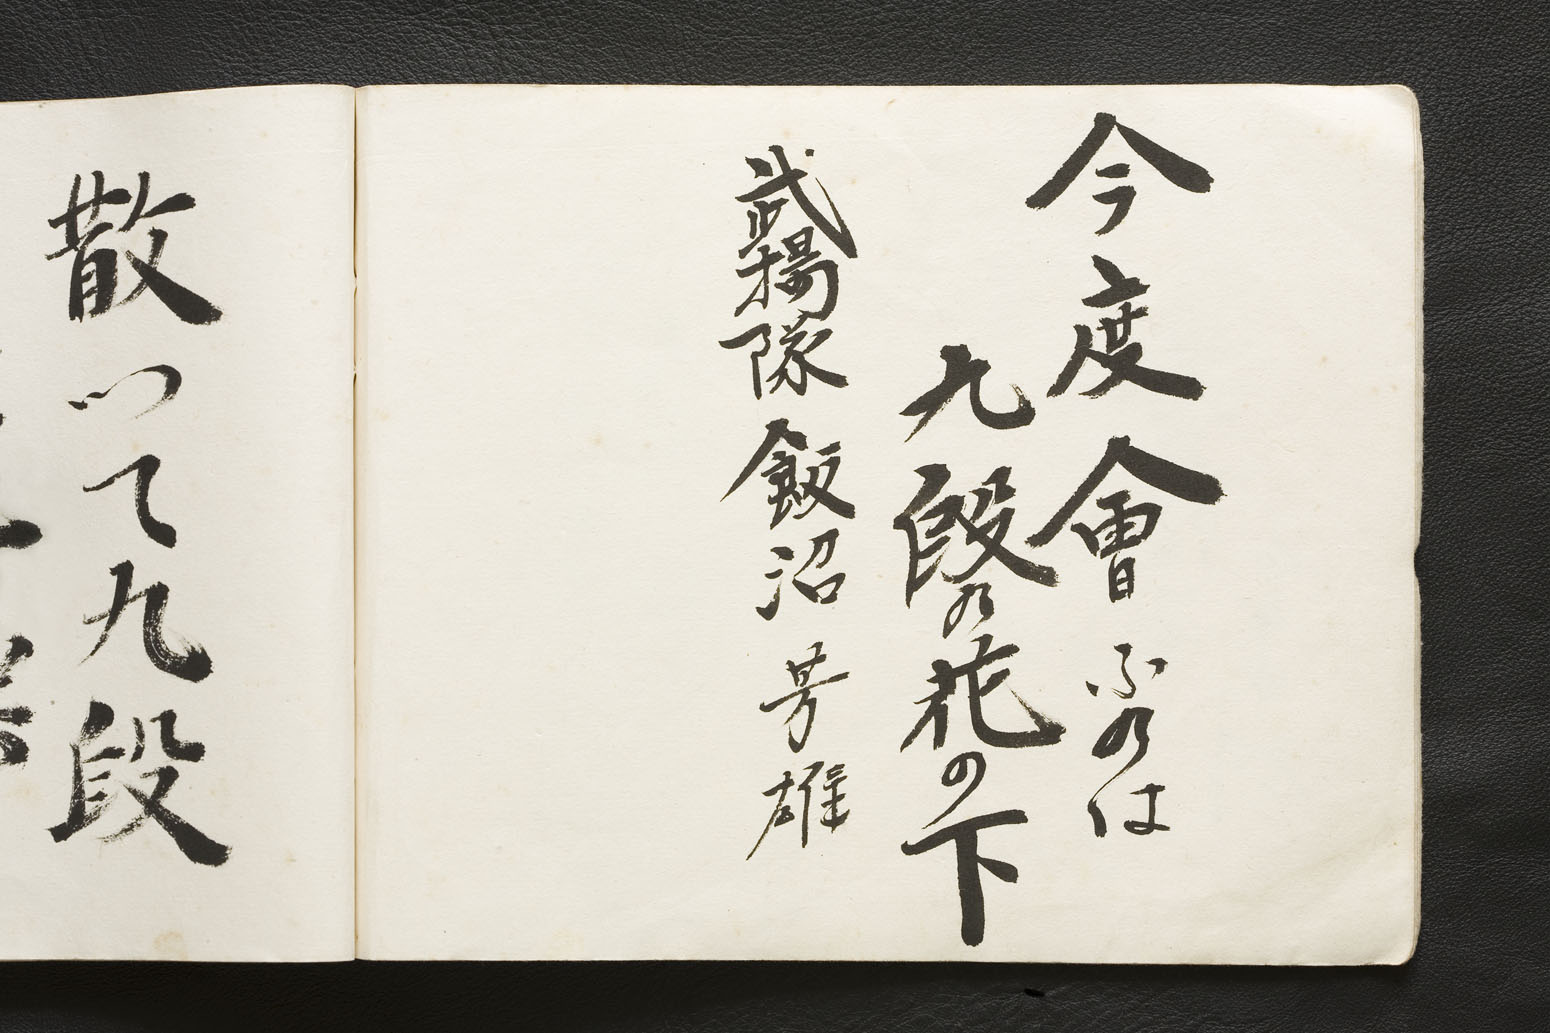 今度會ふのは
九段の花の下
武揚隊 飯沼芳雄
散って九段